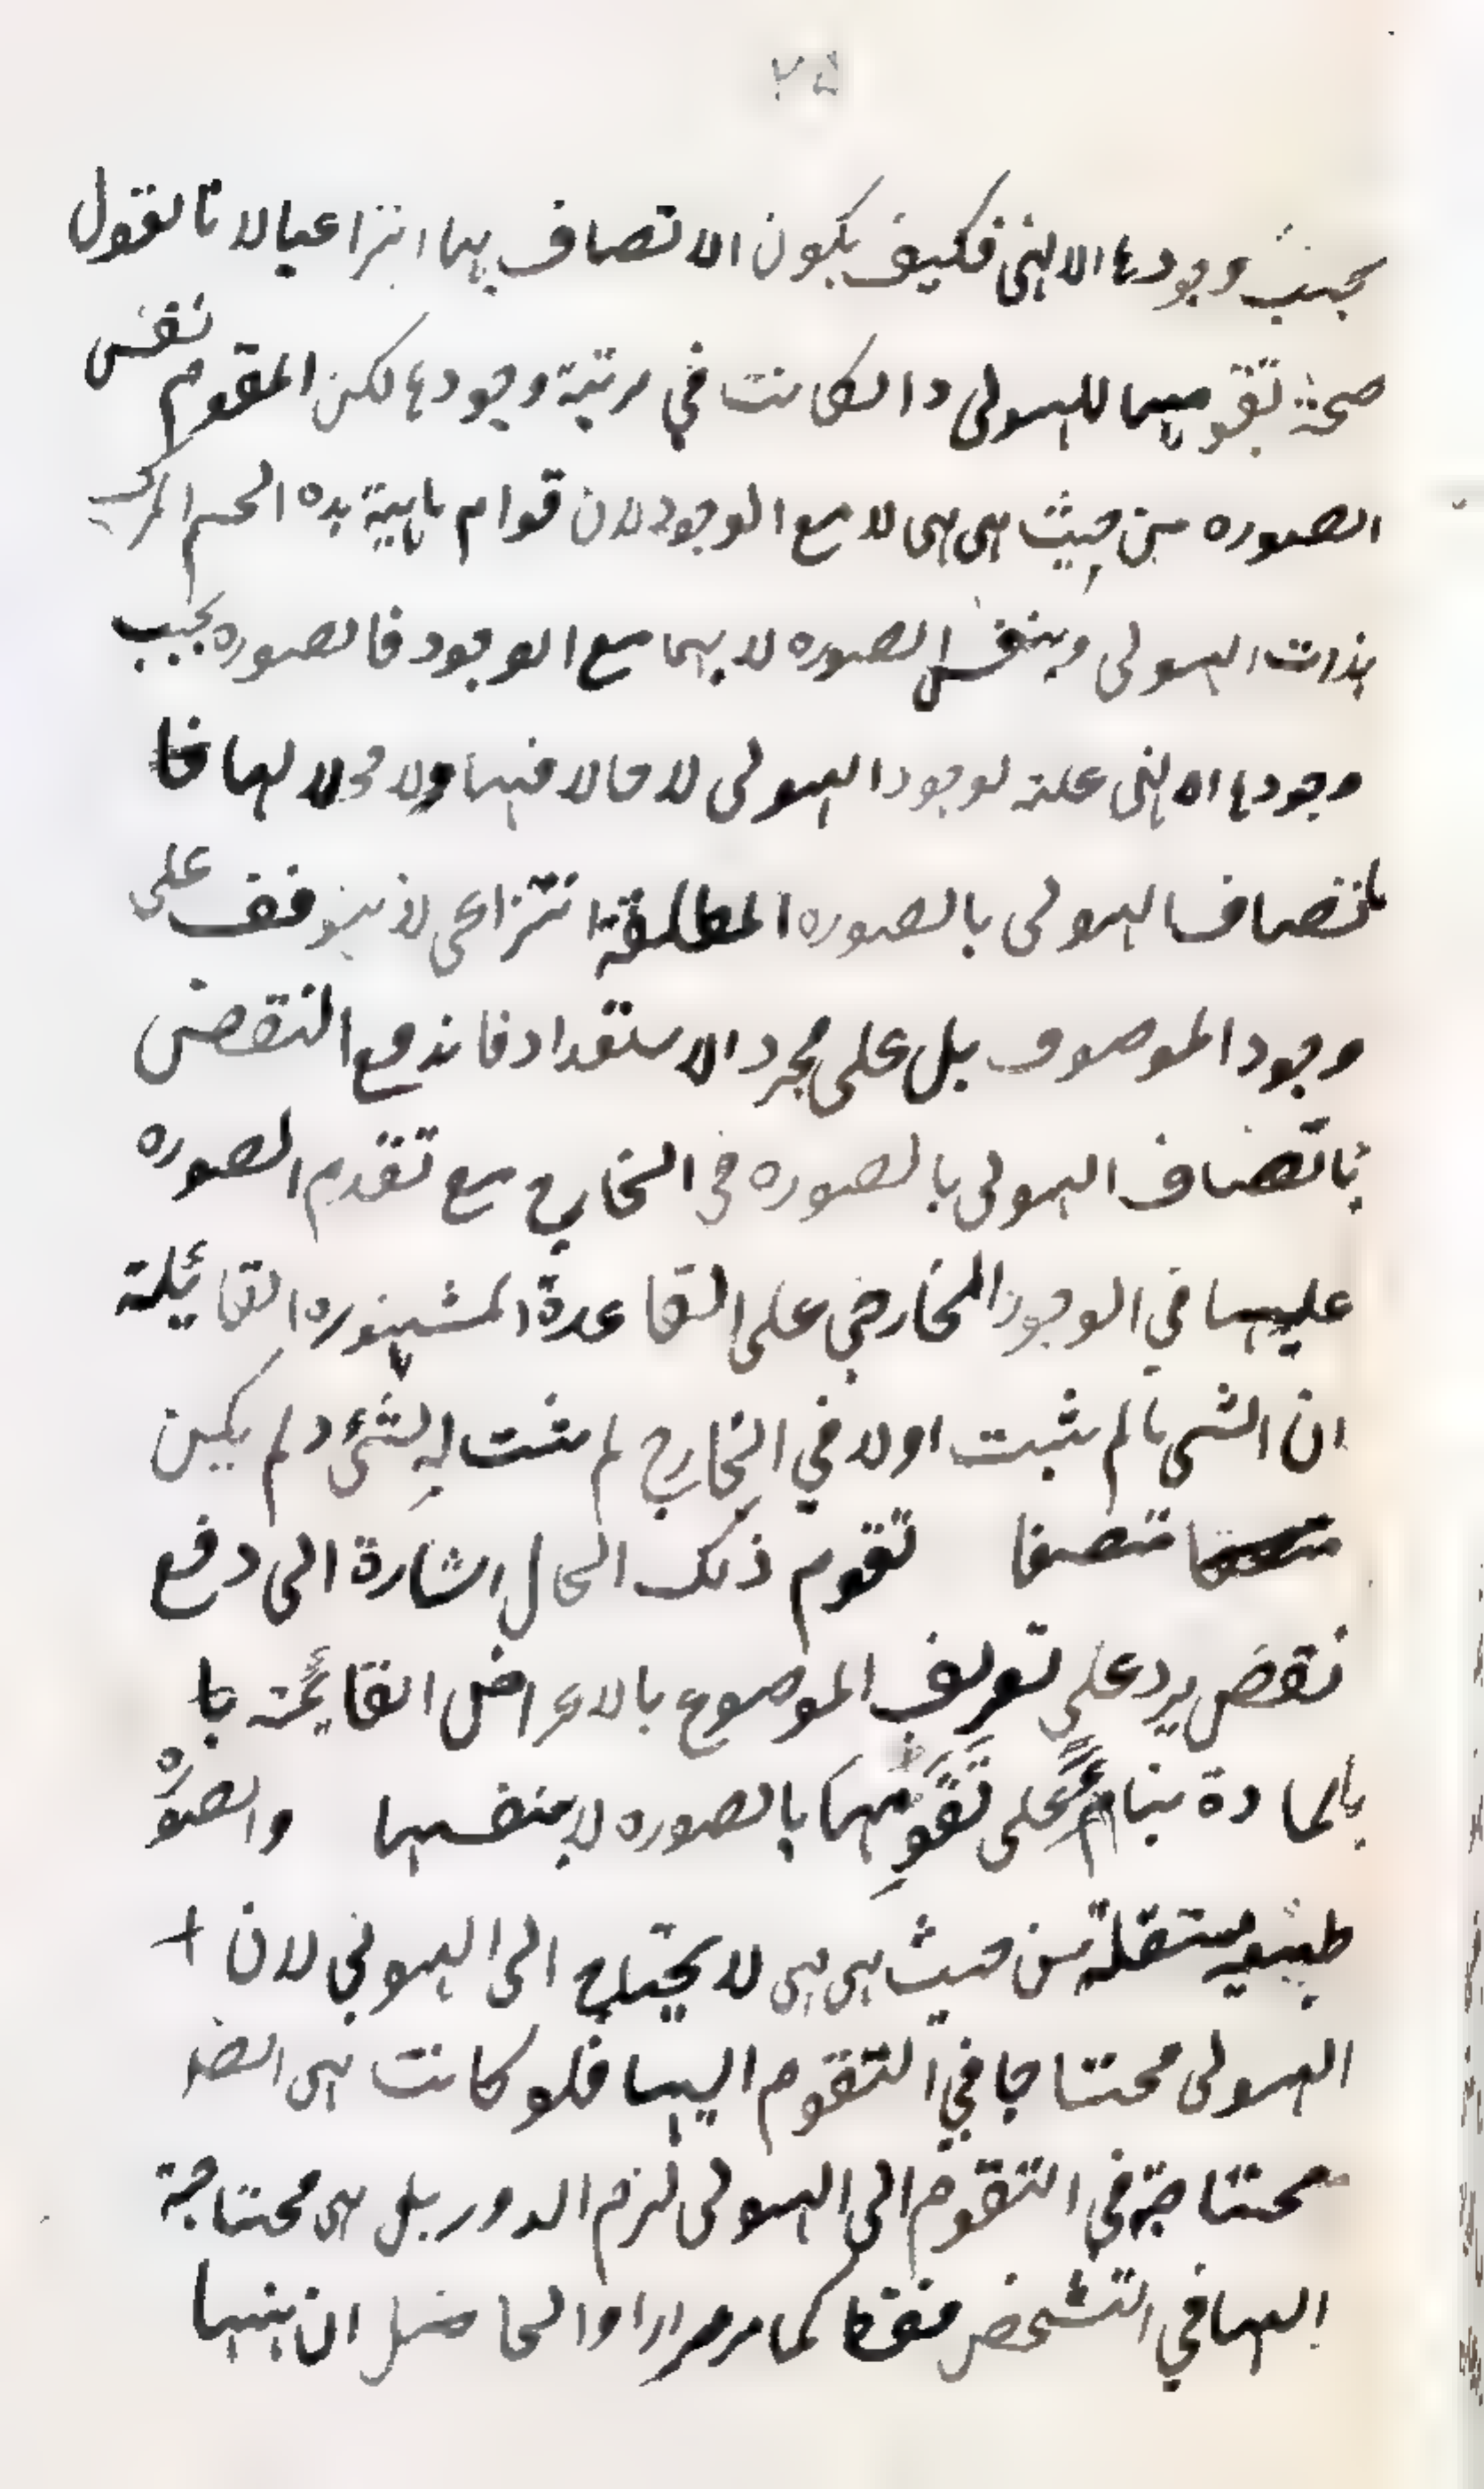 ٧٥
بحيث وجودها الالهى فكيف يكون الاتصاف بها انتزاعيا لانا نقول
صحة تقويمها للهيولى وان كانت في مرتبة وجودها لكن المقوم نفس
الصوره من حيث هى هى لا مع الوجود لان قوام ماهية هذه الجسم المركب
بذات الهيولى وبنفس الصوره لا بهما مع الوجود فالصوره بحيب
وجودها الالهى علته لوجود الهيولى لا حالا فيها ولا محلا لها فا
باتصاف الهيولى بالصوره المطلقة انتزاعى لا يتوقف على
وجود الموصوف بل على مجرد الاستعداد فاندفع النقض
باتصاف الهيولى بالصوره في الخارج مع تقدم الصوره
عليها في الوجود الخارجي على القاعدة المشهوره القائلة
ان الشى مالم يثبت اولا في الخارج لم يثبت له شئ ولم يكن
متصفا تقوم ذلك الحال اشارة الى دفع
نقض يرد على تعريف الموضوع بالاعراض القائمة با
بالمادة بناء على تقومها بالصوره لا بنفسها والصوره
طبيعه مستقلة من حيث هى هى لا يحتاج الى الهيولى لان
الهيولى محتاجا في التقوم اليها فلو كانت هى ايضا
محتاجة في التقوم الى الهيولى لزم الدور بل هى محتاجة
اليها في التشخص فقط كما مر مرارا والحاصل ان بينها